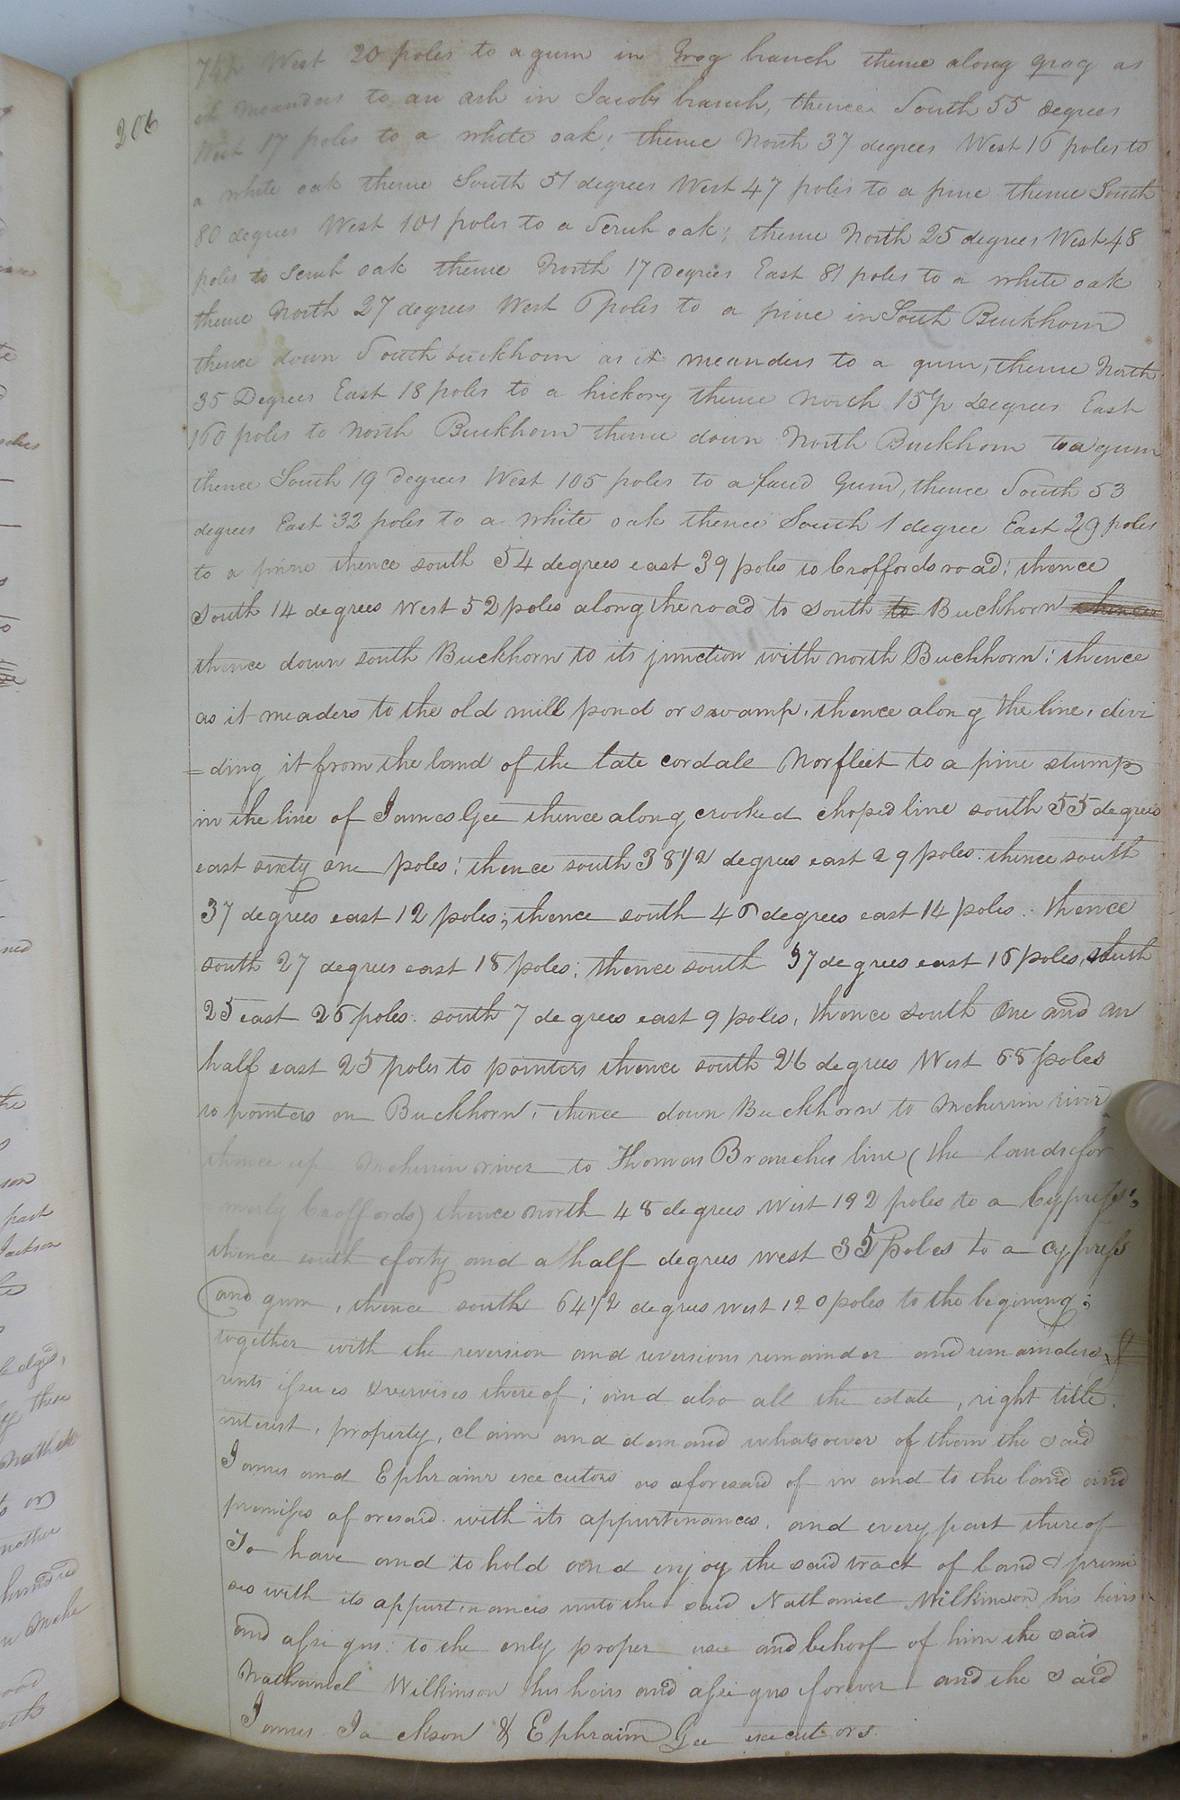 206
West 20 poles to a gum in Frog branch thence along Frog as
it meanders to an ash in Jacobs branch, thence South 55 degrees
West 17 poles to a white oak; thence North 37 degrees West 16 poles to
a white oak thence South 51 degrees West 47 poles to a pine thence South
80 degrees West 101 poles to a Scrub oak; thence North 25 degrees West 48
poles to Scrub oak thence North 17 Degrees East 81 poles to a white oak
thence North 27 degrees West 6 poles to a pine in South Buckhorn
thence down South buckhorn as it meanders to a gum, thence North
35 Degrees East 18 poles to a hickory thence North 15 Degrees East
160 poles to North Buckhorn thence down North Buckhorn to a gum
thence South 19 Degrees West 105 poles to a Gum, thence South 53
degrees East 32 poles to a white oak thence South 1 degree East 29 poles
to a pine thence south 54 degrees east 39 poles to Croffords road; thence
South 14 degrees West 52 poles along the road to south to Buckhorn thence
thence down south Buckhorn to its junction with north Buckhorn; thence
as it meaders to the old mill pond or swamp, thence along the line, divi
=ding it from the land of the late cordale Norfleet to a pine stump
in the line of James Gee thence along crooked choped line south 55 degrees
east sixty one poles; thence south 38 1/2 degrees east 29 poles: thence south
37 degrees east 12 poles; thence south 46 degrees east 14 poles. thence
south 27 degrees east 18 poles; thence south 37 degrees east 16 poles, south
25 east 26 poles. south 7 degrees east 9 poles, thence south One and an
half east 25 poles to pointers thence south 26 degrees West 68 poles
to pointers on Buckhorn, thence down Buckhorn to Meherrin river
thence up Meherrin river to Thomas Branches line (the lands for
merly Croffords) thence north 48 degrees West 192 poles to a Cypress;
thence south forty and a half degrees west 35 poles to a cypress
and gum, thence south 64 1/2 degrees west 120 poles to the begining;
together with the reversion and reversions remainder and remainders,
rents issues & services thereof; and also all the estate, right title.
interest, property, claim and demand whatsoever of them the said
James and Ephraim executors as aforesaid of in and to the land and
premises aforesaid with its appurtenances, and every part thereof
To have and to hold and enjoy the said tract of land & premi
ses with its appurtinances unto the said Nathaniel Wilkinson his heirs
and assigns: to the only proper use and behoof of him the said
Nathaniel Wilkinson his heirs and assigns forever and the said
James Jackson & Ephraim Gee executors.